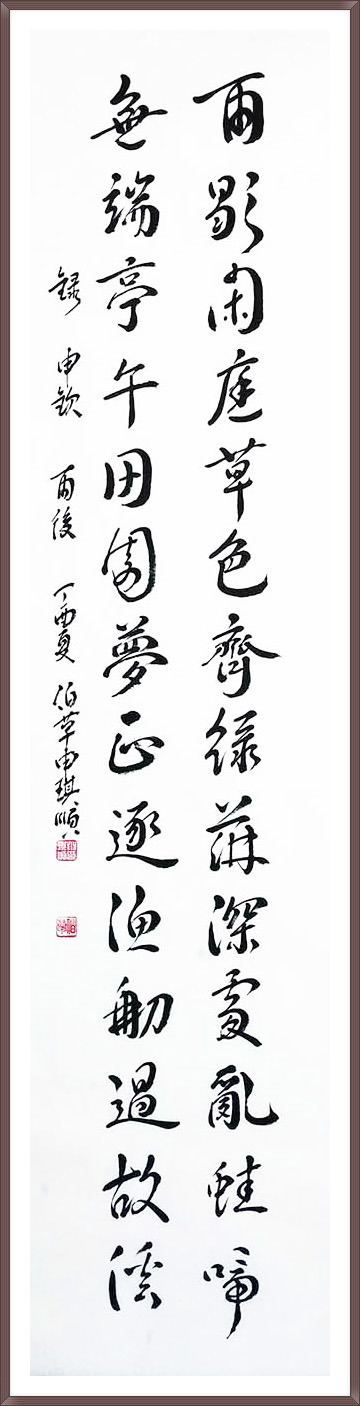 雨歇閑庭草色齊綠萍深處亂蛙啼
無端亭午田園夢正逐漁舠過故溪
錄 申欽 雨後 丁酉夏 伯草 琪順